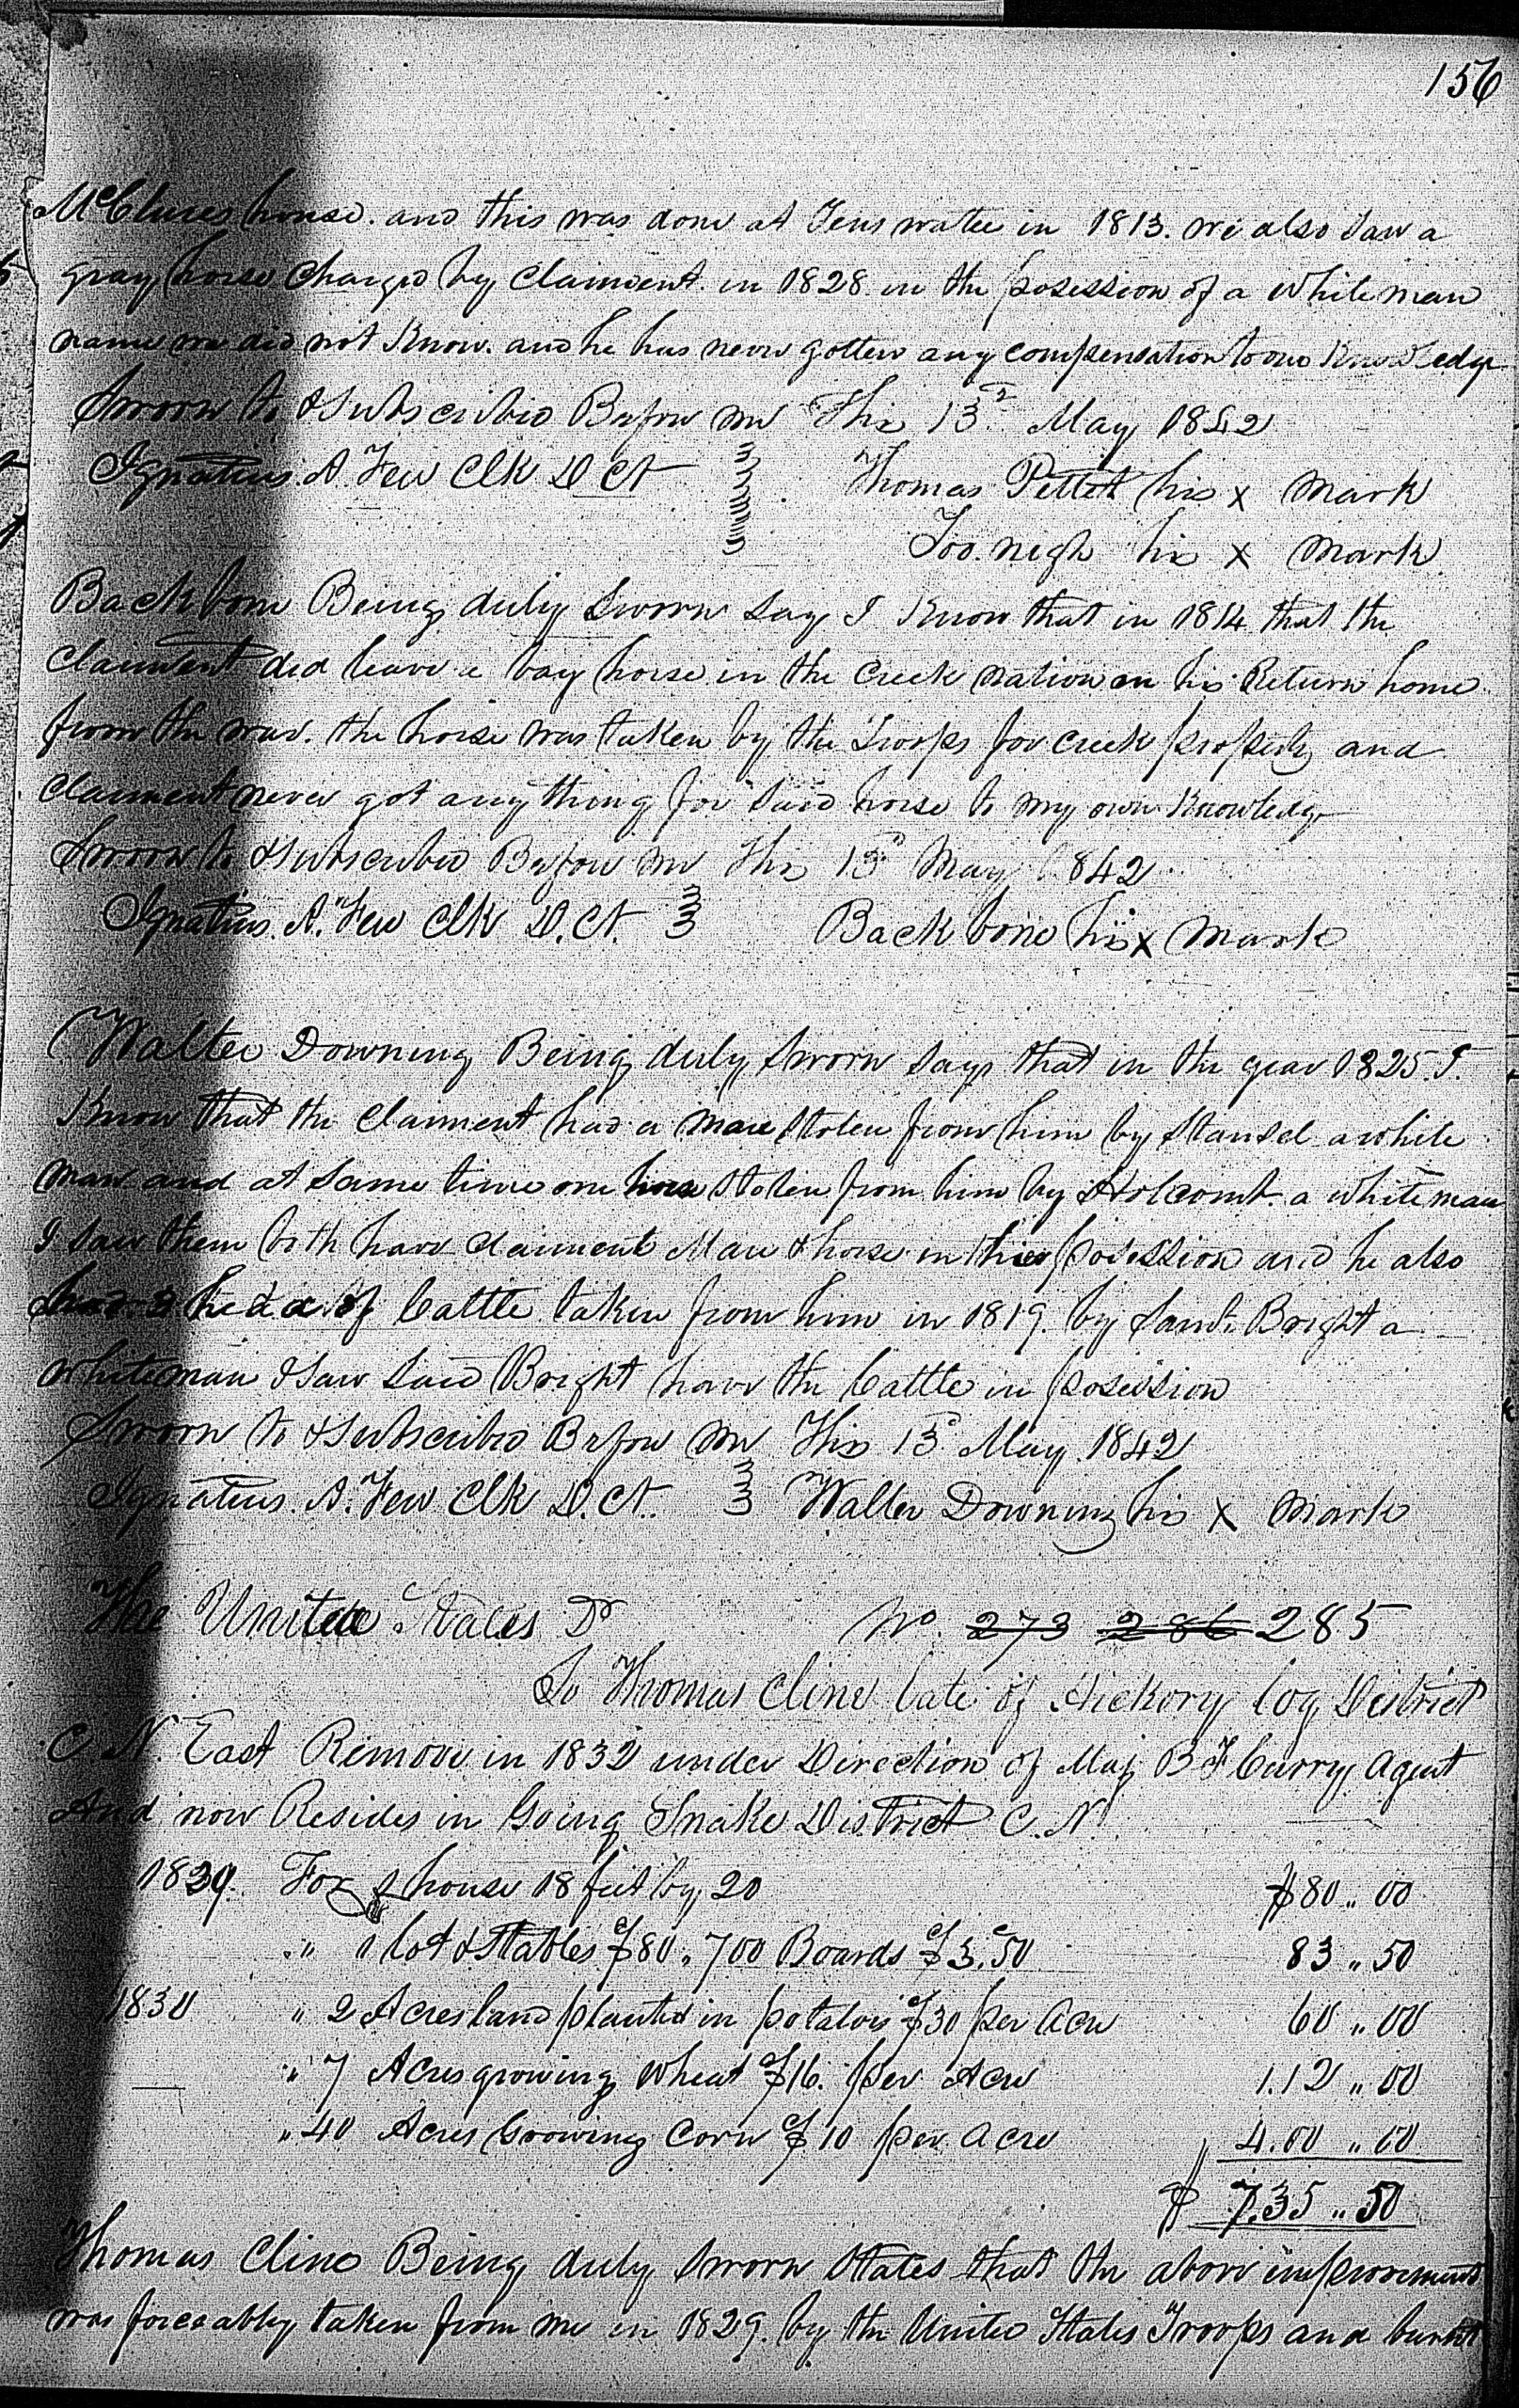 156
McClures house. and this was done at Tenswattee in 1813. we also saw a
gray horse Charged by Claiment. in 1828. in the posession of a white man
name we did not Know. and he has never gotten any compensation to our Knowledge
Sworn to & Subscribed Before me This 13th May 1842
Ignatius. A. Few Clk D. Ct Thomas Pettit his x mark
Too. nigh his x mark
Back bone Being duly Sworn Say I Know that in 1814 that the
Claiment did leave a bay horse in the Creek nation on his Return home
from the war. the horse was taken by the Troops for creek property and
Claiment never got any thing for Said horse to my own Knowledge
Sworn to & Subscribed Before me This 13th May 1842
Ignatius. A. Few Clk D. Ct. Back bone his x mark
Walter Downing Being duly Sworn Says that in the year 1825. I.
Know that the Claiment had a mare Stolen from him by Stansel a white
man and at Same time one horse Stolen from him by Holcomb. a white man
I Saw them both have claiments Mare & horse in their posession and he also
had 3 head of Cattle taken from him in 1819. by Saml. Bright a
white man I Saw Said Bright have the Cattle in posession
Sworn to & Subscribed Before me This 13th May. 1842
Ignatius. A. Few Clk D. Ct.. Walter Downing his x mark
The United States Dr No. 273 286 285
To Thomas Cline late of Hickory log District
C. N. East Remove in 1832 under Direction of Maj B F Curry Agent
And now Resides in Going Snake District C. N.
1829. For 1 house 18 feet by 20 $80 .. 00
" 1 lot & Stables $80 " 700 Boards $3.50 83 .. 50
1830 " 2 Acres land planted in potatois $30 per Acre 60 .. 00
" 7 Acres growing wheat $16. per Acre 1.12 .. 00
" 40 Acres Growing Corn $10 per Acre 4.00 .. 00
$ 7.35 .. 50
Thomas Cline Being duly Sworn States that the above improvement
was forceably taken from me in 1829. by the United States Troops and burnt